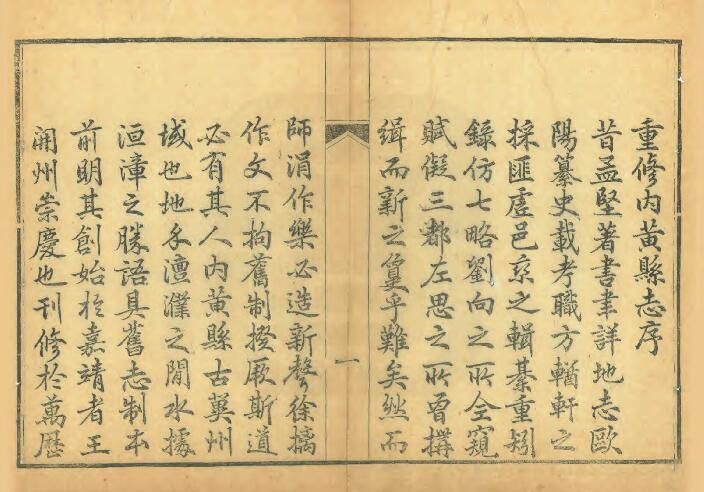 重修内黄縣志序
昔孟堅著書聿詳地志歐
陽纂史載考職方輶軒之
採匪虚邑乘之輯綦重矧
錄仿七略劉向之所仝窺
賦儗三都左思之所曾撰
緝而新之戞乎難矣然而
一
師涓作樂必造新聲徐摛
作文不拘舊制揆厥斯道
必有其人内黄縣古冀州
域也地澶濮之間水據
洹漳之勝語具舊志制本
前明其創始於嘉靖者王
開州崇慶也刊修於萬歷